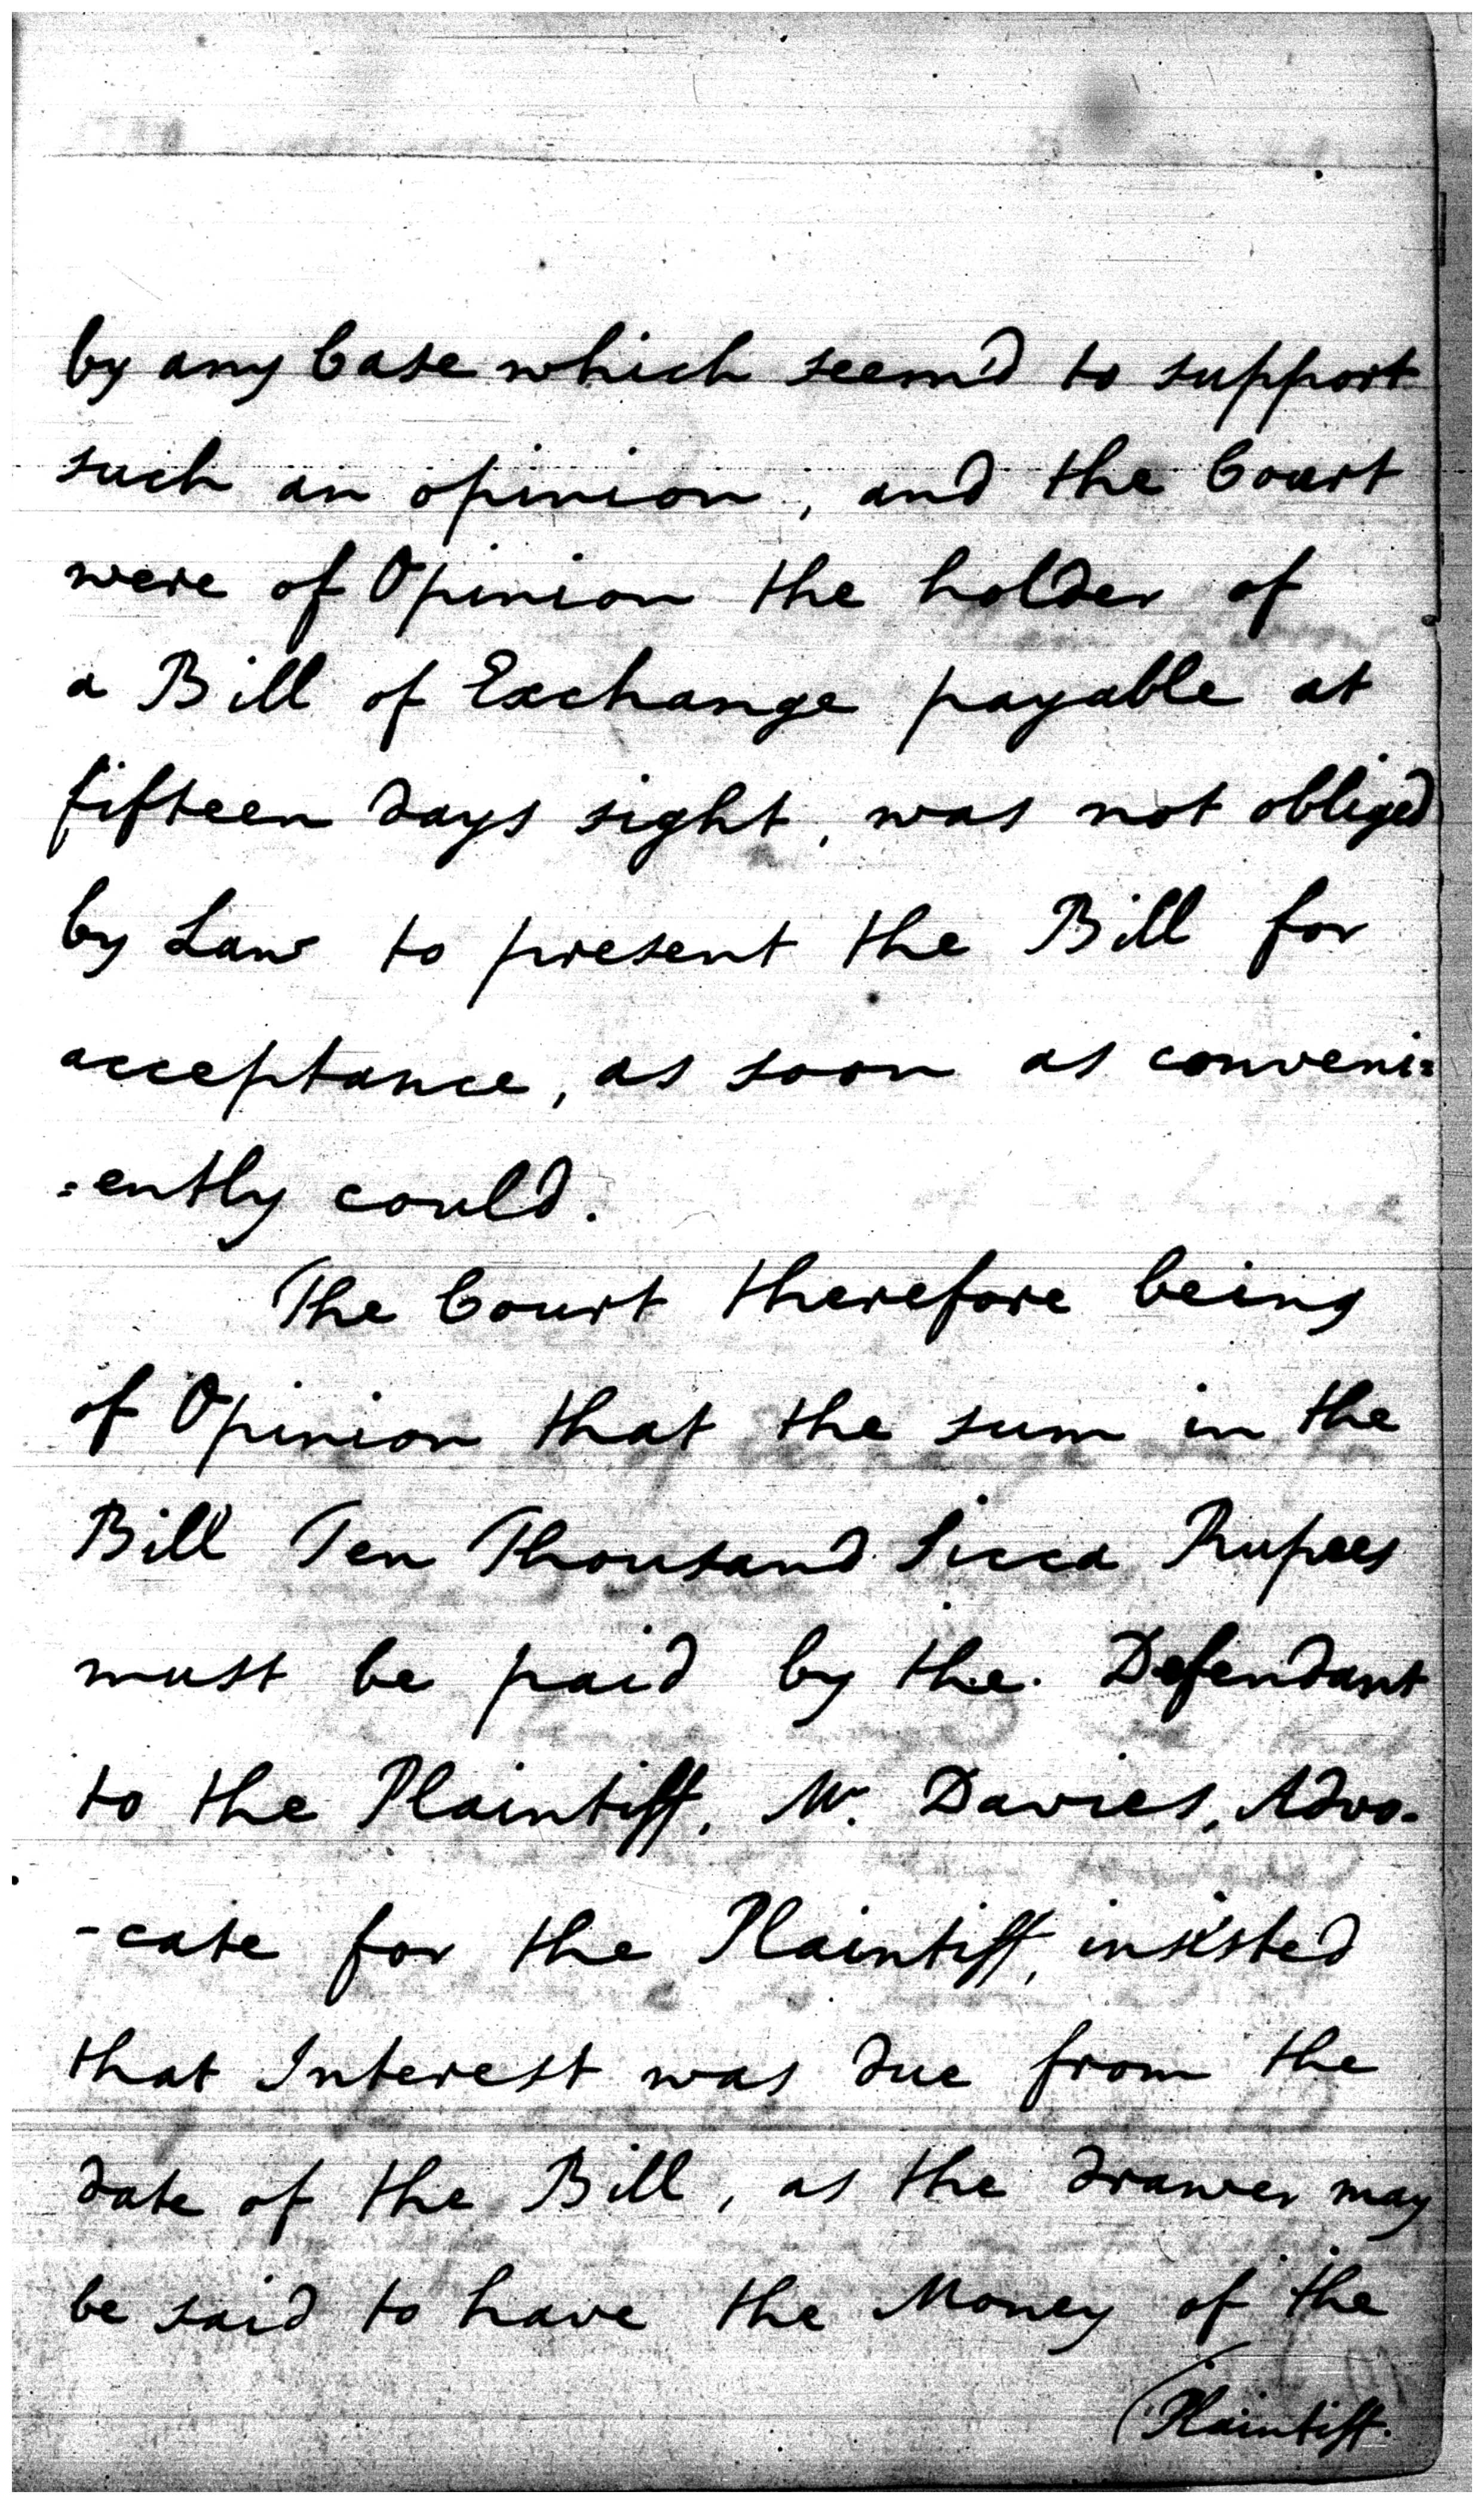 by any Case which seem'd to support
such an opinion, and the Court
were of Opinion the holder of
a Bill of Exchange payable at
fifteen days sight, was not obliged
by Law to present the Bill for
acceptance, as soon as conveni=
=ently could.
The Court therefore being
of Opinion that the sum in the
Bill Ten Thousand Sicca Rupees
must be paid by the Defendant
to the Plaintiff, Mr. Davies, Advo-
-cate for the Plaintiff, insisted
that Interest was due from the
date of the Bill, as the drawer may
be said to have the Money of the
Plaintiff.